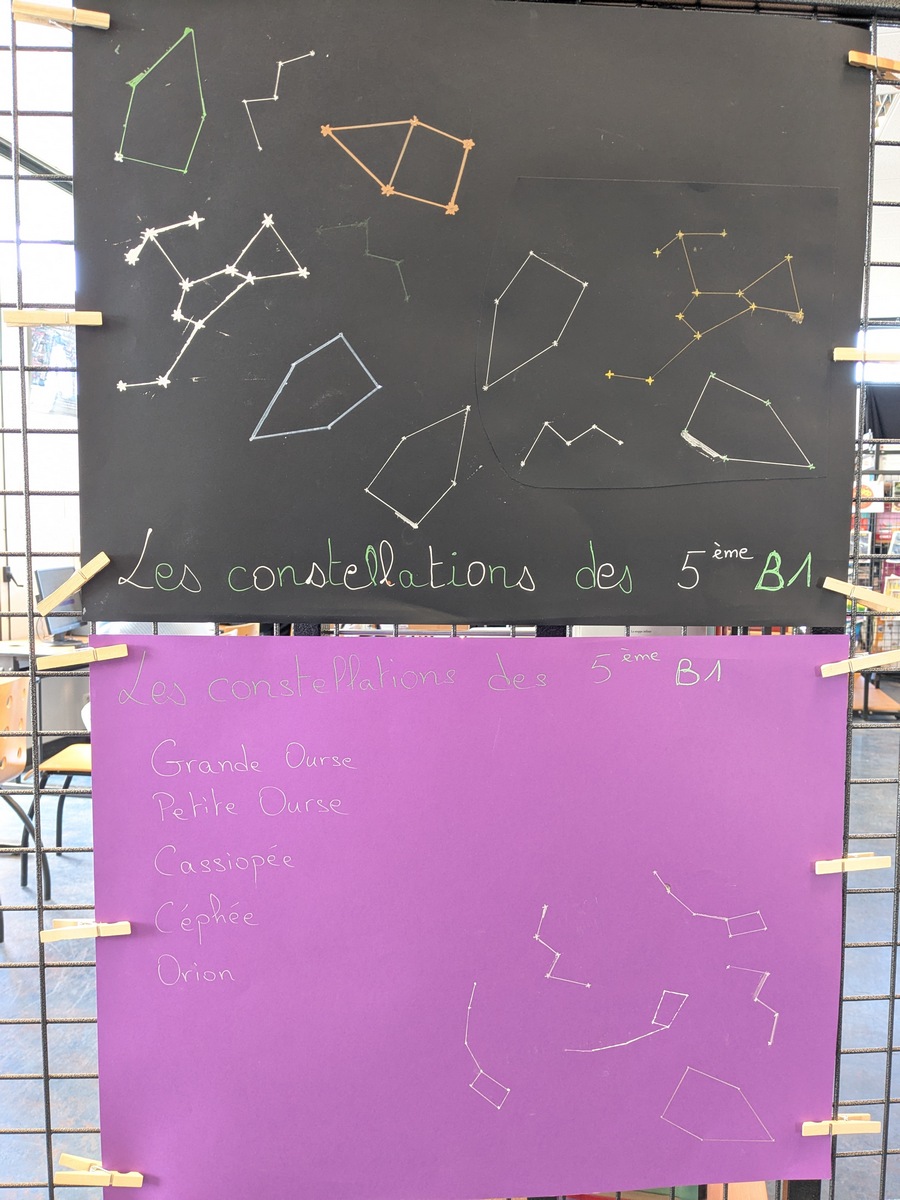 Les constellations des 5ème B1
Les constellations des 5ème B1
Grande Ourse
Petite Ourse
Cassiopée
Céphée
Orion